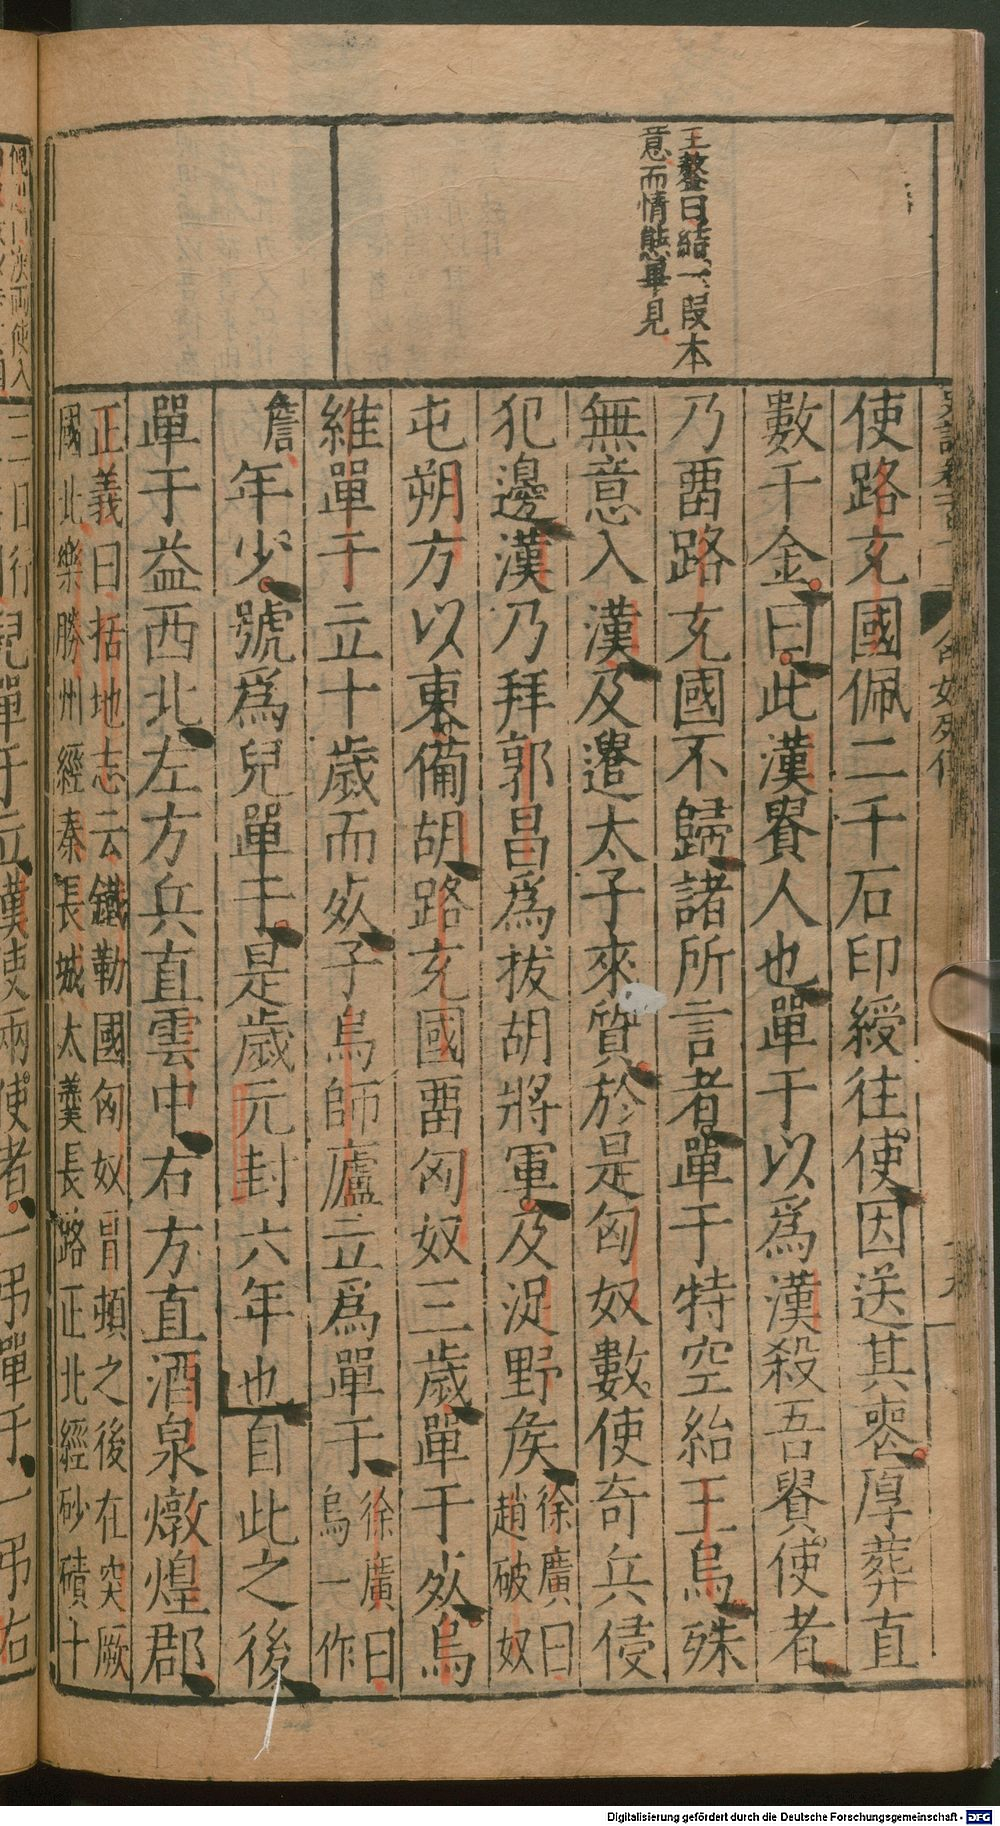 王鏊曰結一段本
意而情態畢見
使路充國佩二千石印綬往使因送其喪厚葬直
數千金曰此漢貴人也單于以爲漢殺吾貴使者
乃畱路充國不歸諸所言者單于特空紿王烏殊
無意入漢及遣太子來質於是匈奴數使奇兵侵
犯邊漢乃拜郭昌爲拔胡將軍及浞野侯徐廣曰趙破奴
屯朔方以東備胡路充國畱匈奴三歲單于死烏
維單于立十歲而死子烏師廬立爲單于徐廣曰烏一作
詹年少號爲兒單于是歲元封六年也自此之後
單于益西北左方兵直雲中右方直酒泉燉煌郡
正義曰括地志云鐵勒國匈奴冒頓之後在突厥
國北樂勝州經秦長城太羹長路正北經砂磧十
Digitalisierung gefördert durch die Deutsche Forschungsgemeinschaft - DFG